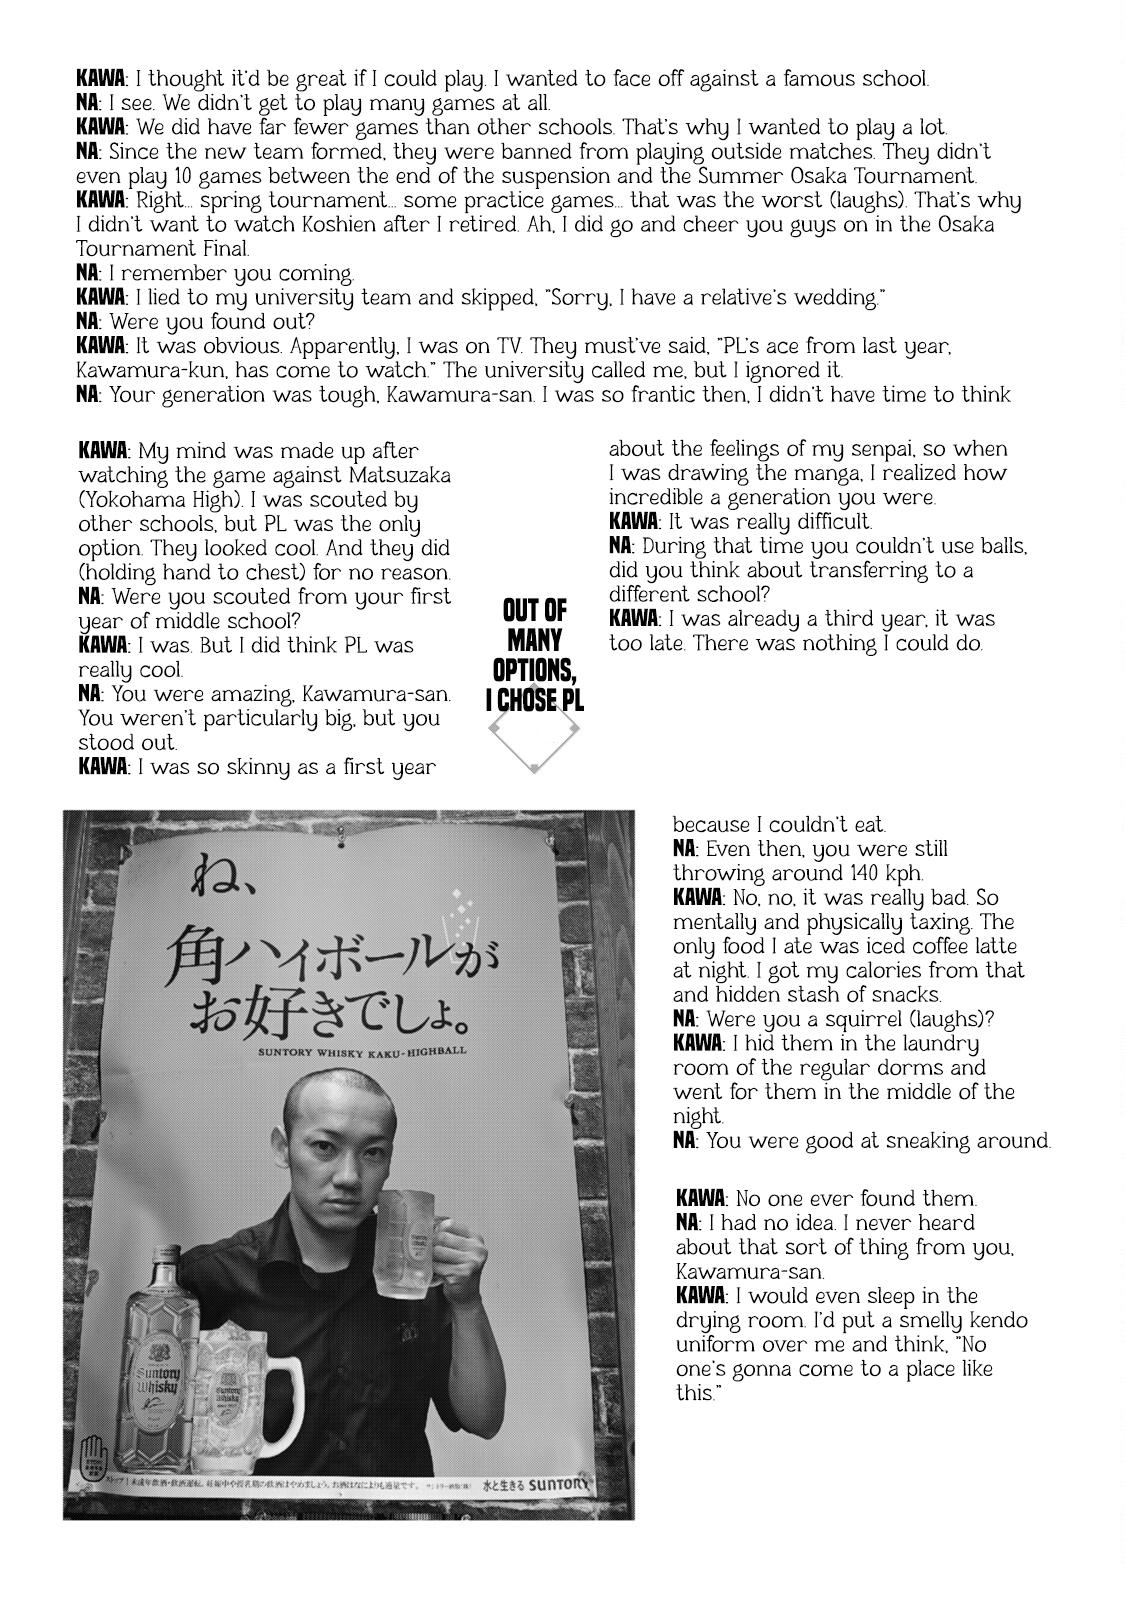 KAWA: I thought it'd be great if I could play. I wanted to face off against a famous school.
NA: I see. We didn't get to play many games at all.
KAWA: We did have far fewer games than other schools. That's why I wanted to play a lot.
NA: Since the new team formed, they were banned from playing outside matches. They didn't
even play 10 games between the end of the suspension and the Summer Osaka Tournament.
KAWA: Right... spring tournament... some practice games... that was the worst (laughs). That's why
I didn't want to watch Koshien after I retired. Ah, I did go and cheer you guys on in the Osaka
Tournament Final.
NA: I remember you coming.
KAWA: I lied to my university team and skipped, "Sorry, I have a relative's wedding."
NA: Were you found out?
KAWA: It was obvious. Apparently, I was on TV. They must've said, "PL's ace from last year,
Kawamura-kun, has come to watch." The university called me, but I ignored it.
NA: Your generation was tough, Kawamura-san. I was so frantic then, I didn't have time to think
about the feelings of my senpai, so when
I was drawing the manga, I realized how
incredible a generation you were.
KAWA: It was really difficult.
NA: During that time you couldn't use balls,
did you think about transferring to a
different school?
KAWA: I was already a third year, it was
too late. There was nothing I could do.
OUT OF
MANY
OPTIONS,
I CHOSE PL
KAWA: My mind was made up after
watching the game against Matsuzaka
(Yokohama High). I was scouted by
other schools, but PL was the only
option. They looked cool. And they did
(holding hand to chest) for no reason.
NA: Were you scouted from your first
year of middle school?
KAWA: I was. But I did think PL was
really cool.
NA: You were amazing, Kawamura-san.
You weren't particularly big, but you
stood out.
KAWA: I was so skinny as a first year
because I couldn't eat.
NA: Even then, you were still
throwing around 140 kph.
KAWA: No, no, it was really bad. So
mentally and physically taxing. The
only food I ate was iced coffee latte
at night. I got my calories from that
and hidden stash of snacks.
NA: Were you a squirrel (laughs)?
KAWA: I hid them in the laundry
room of the regular dorms and
went for them in the middle of the
night.
NA: You were good at sneaking around.
KAWA: No one ever found them.
NA: I had no idea. I never heard
about that sort of thing from you,
Kawamura-san.
KAWA: I would even sleep in the
drying room. I'd put a smelly kendo
uniform over me and think, "No
one's gonna come to a place like
this."
ね、
角ハイボールが
お好きでしょ。
SUNTORY WHISKY KAKU-HIGHBALL
Suntory
Whisky
水と生きる SUNTORY